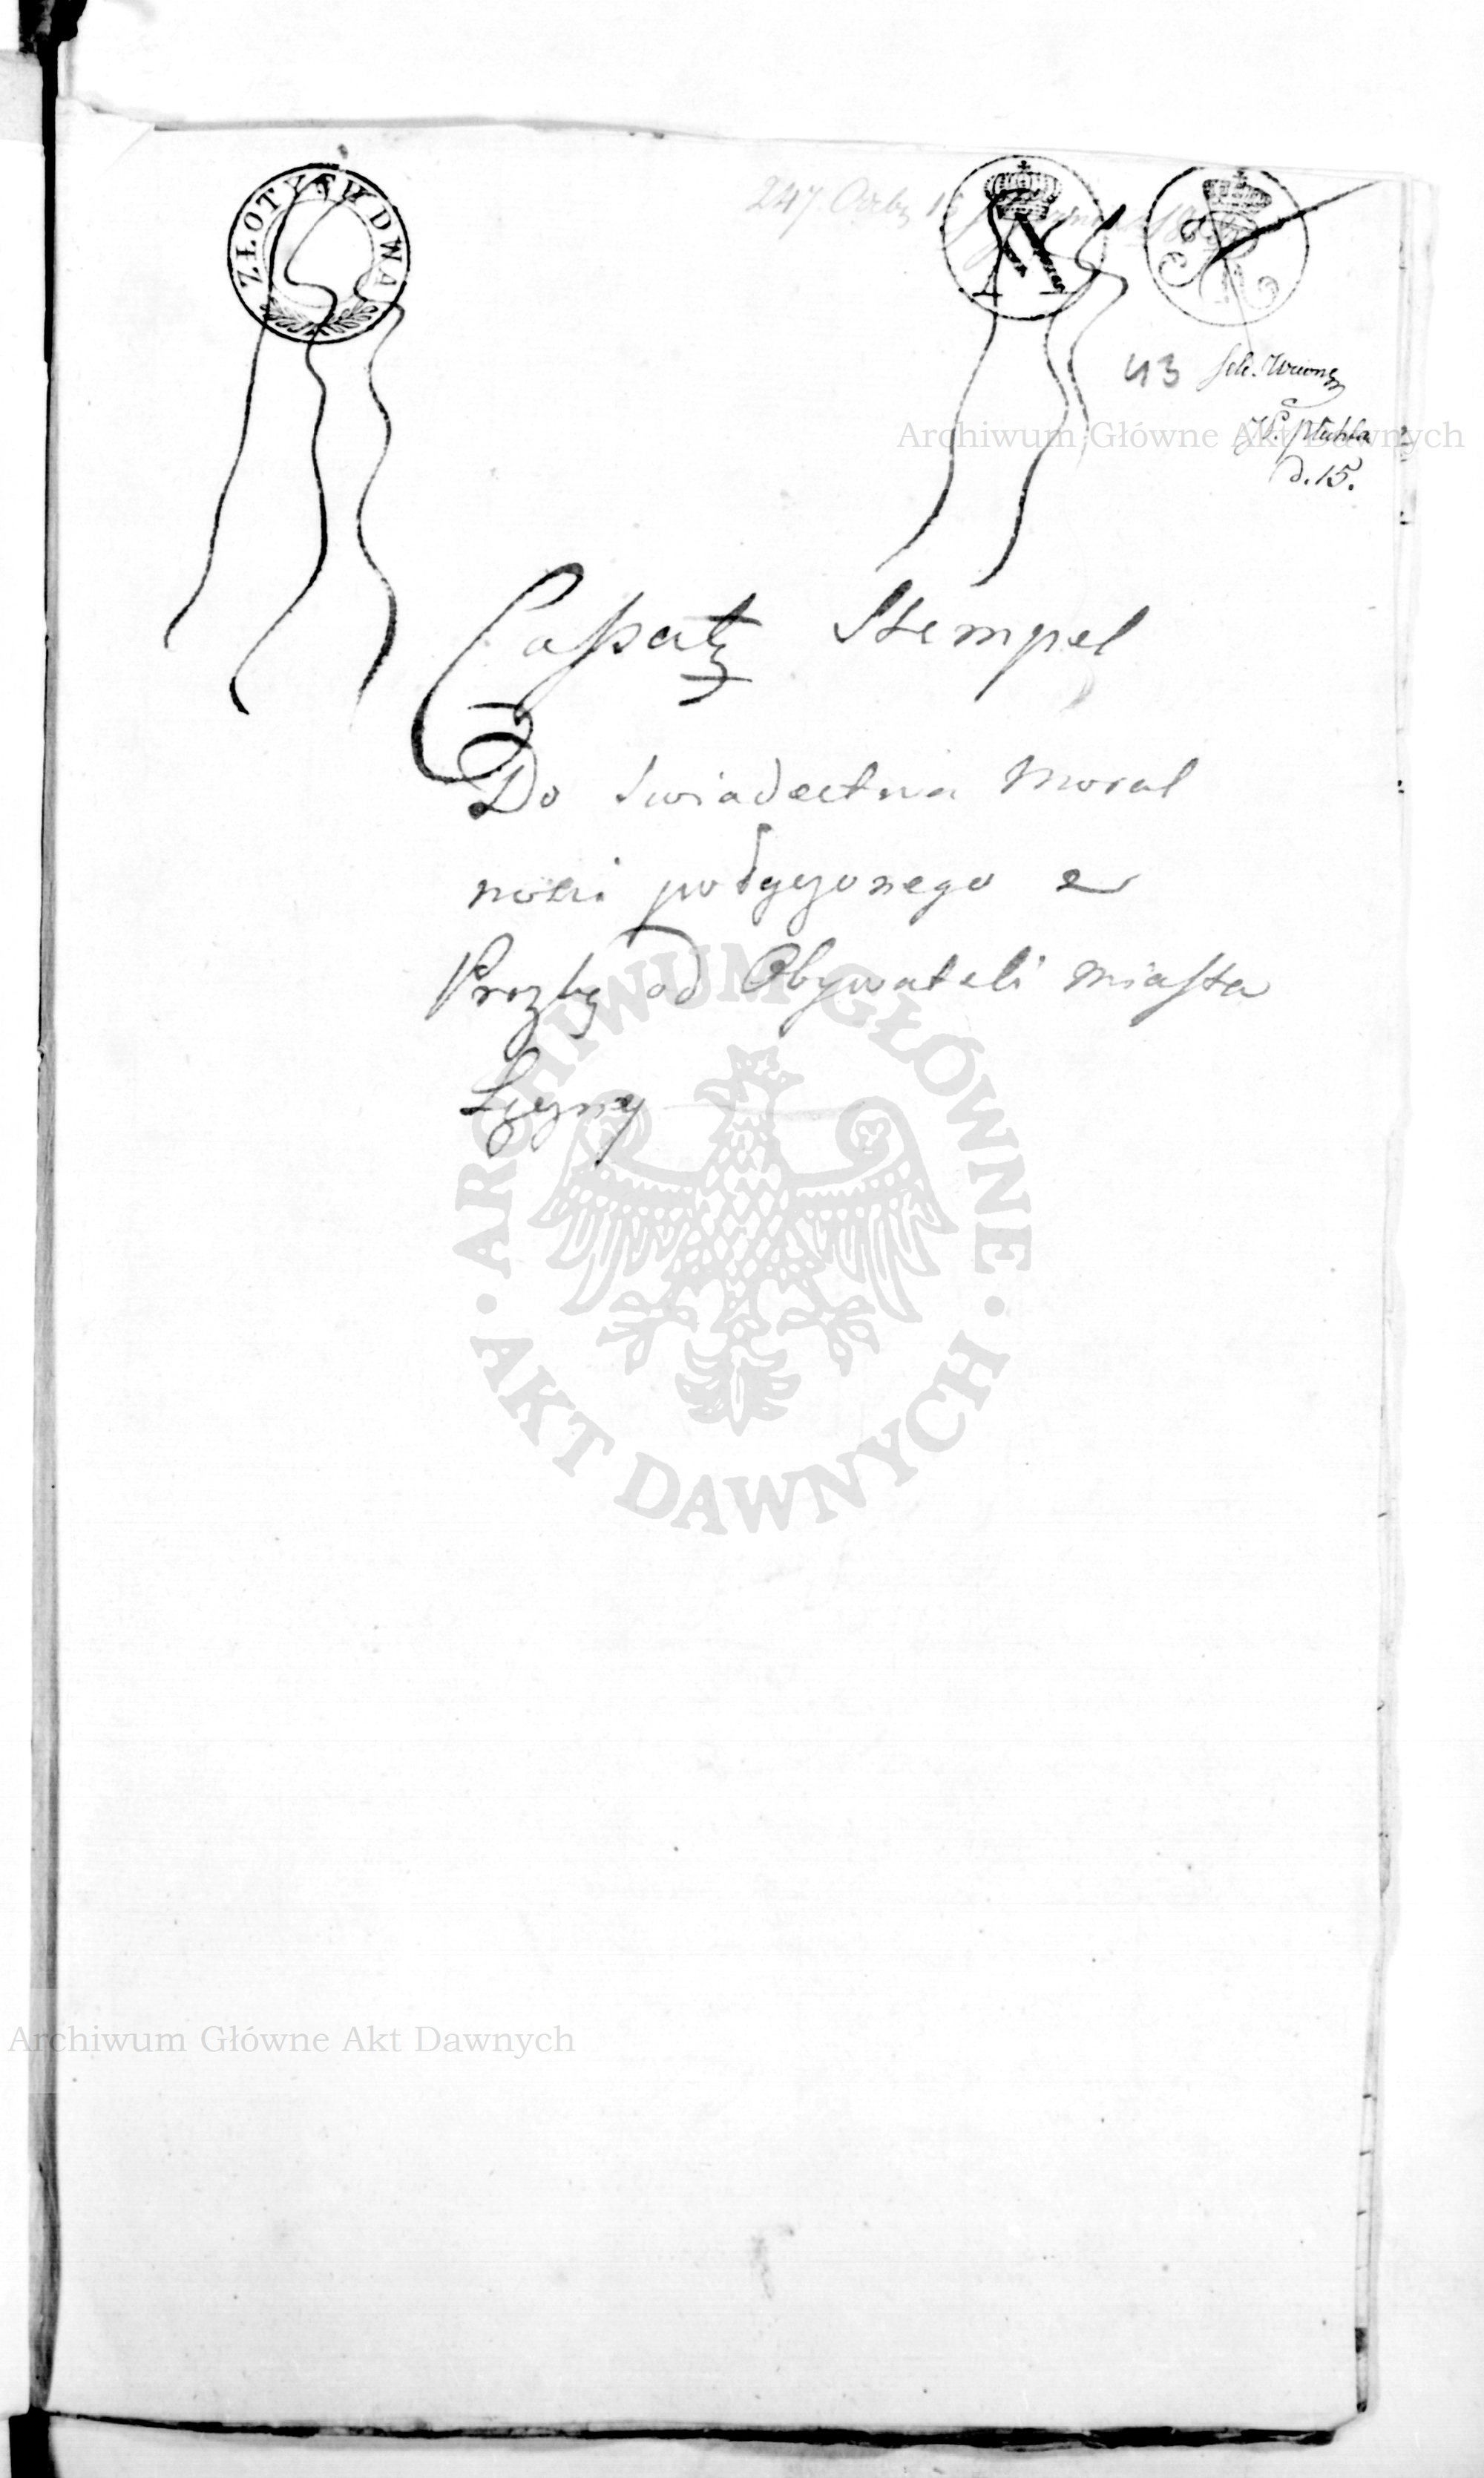 ZŁOTYCH DWA
247.
43
d. 15.
Archiwum Główne Akt Dawnych
Cassaty Stempel
Do Swiadectwa Moral
nosci połączonego z
Prozbą od Obywateli miasta
Łęczny
ARCHIWUM GŁÓWNE
AKT DAWNYCH
Archiwum Główne Akt Dawnych